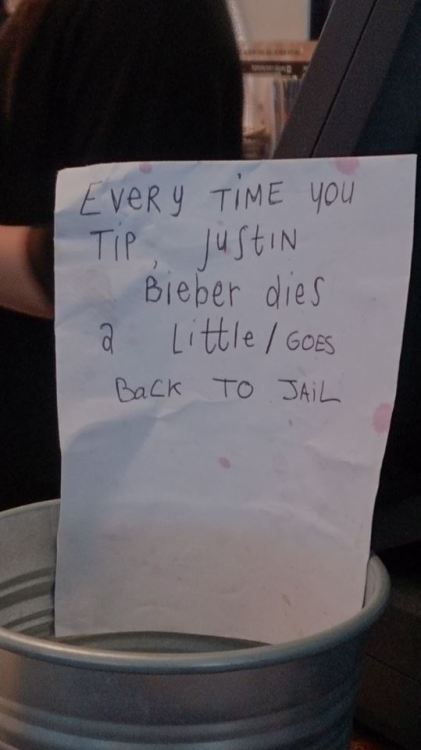 EVERY TIME YOU
TIP, JUSTIN
Bieber dies
a Little/GOES
BACK TO JAIL